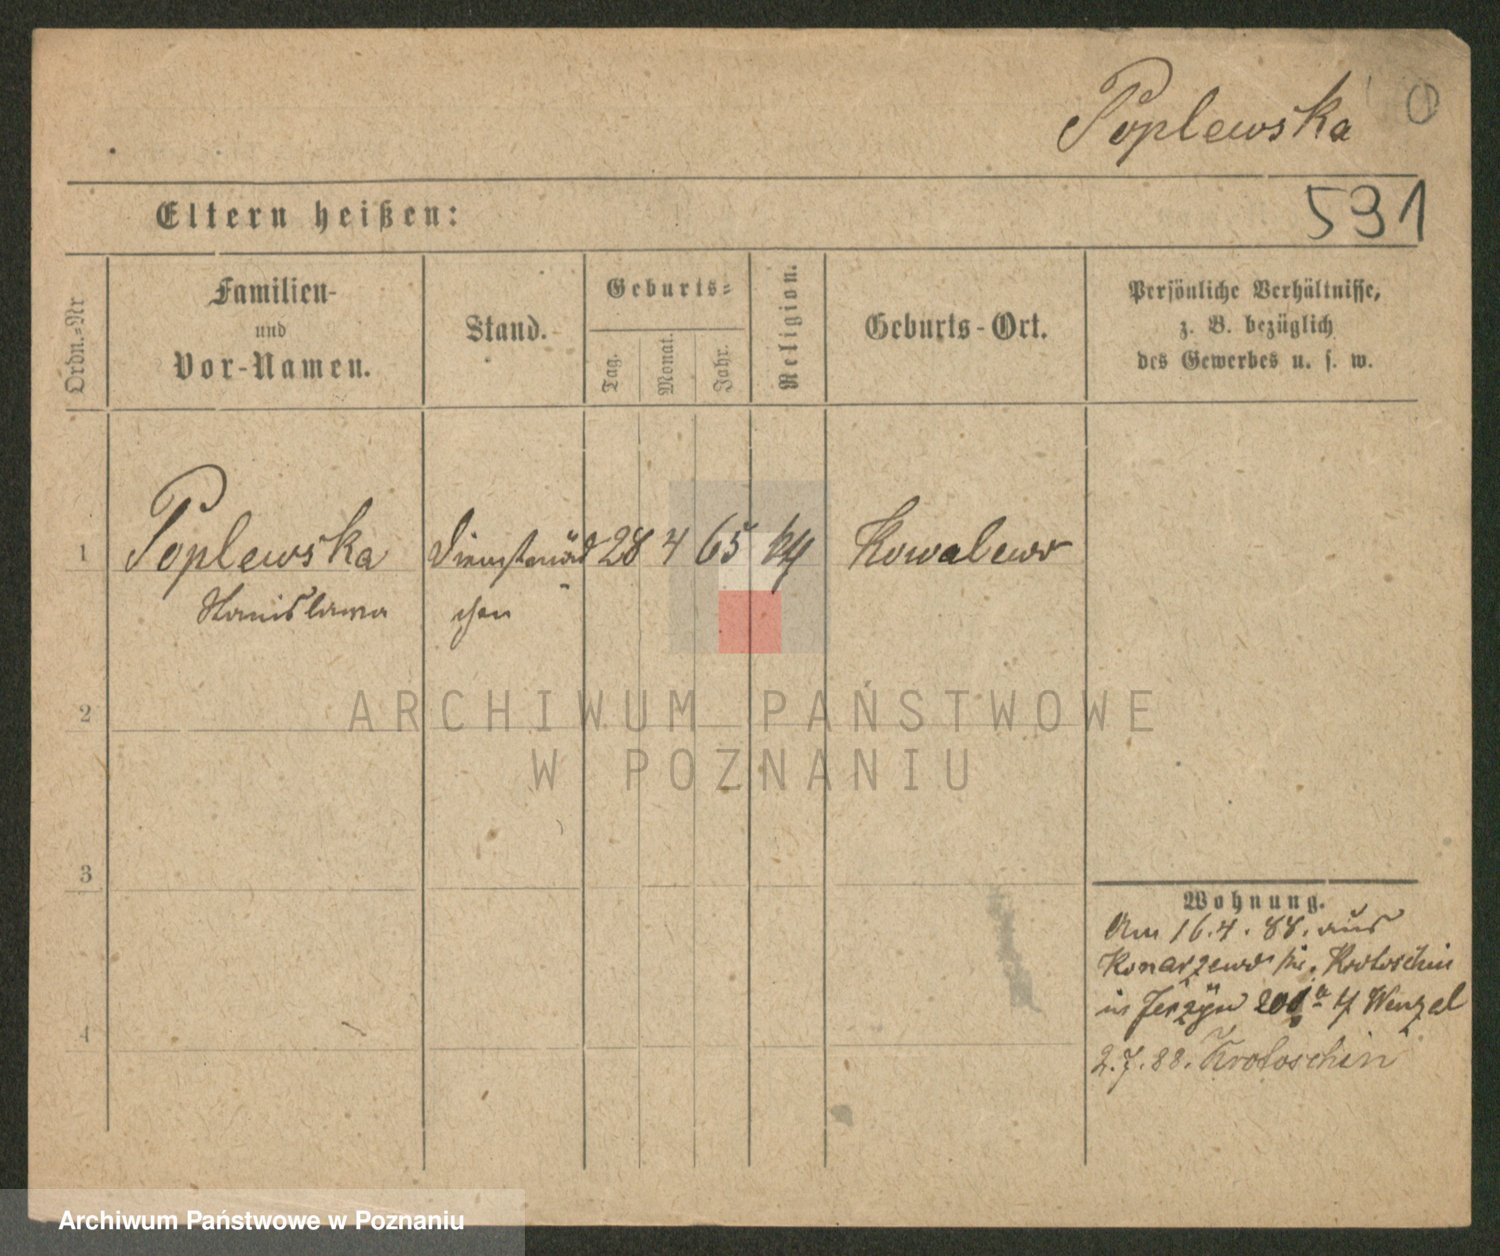 Poplewska
0
531
Eltern heißen:
Ordn.-Nr
Familien-
und
Vor-Namen.
Stand.
Geburts-
Tag.
Monat.
Jahr.
Religion.
Geburts-Ort.
Persönliche Verhältnisse,
z. B. bezüglich
des Gewerbes u. s. w.
1
Poplewska
Stanislawa
Dienstmäd
chen
28
4
65
Kowalewo
2
3
4
Wohnung.
Am 16.4.88. aus
Konarzewo Kr. Krotoschin
in Jerzyn Wenzel
2.7.88. Krotoschin
ARCHIWUM PAŃSTWOWE
W POZNANIU
Archiwum Państwowe w Poznaniu